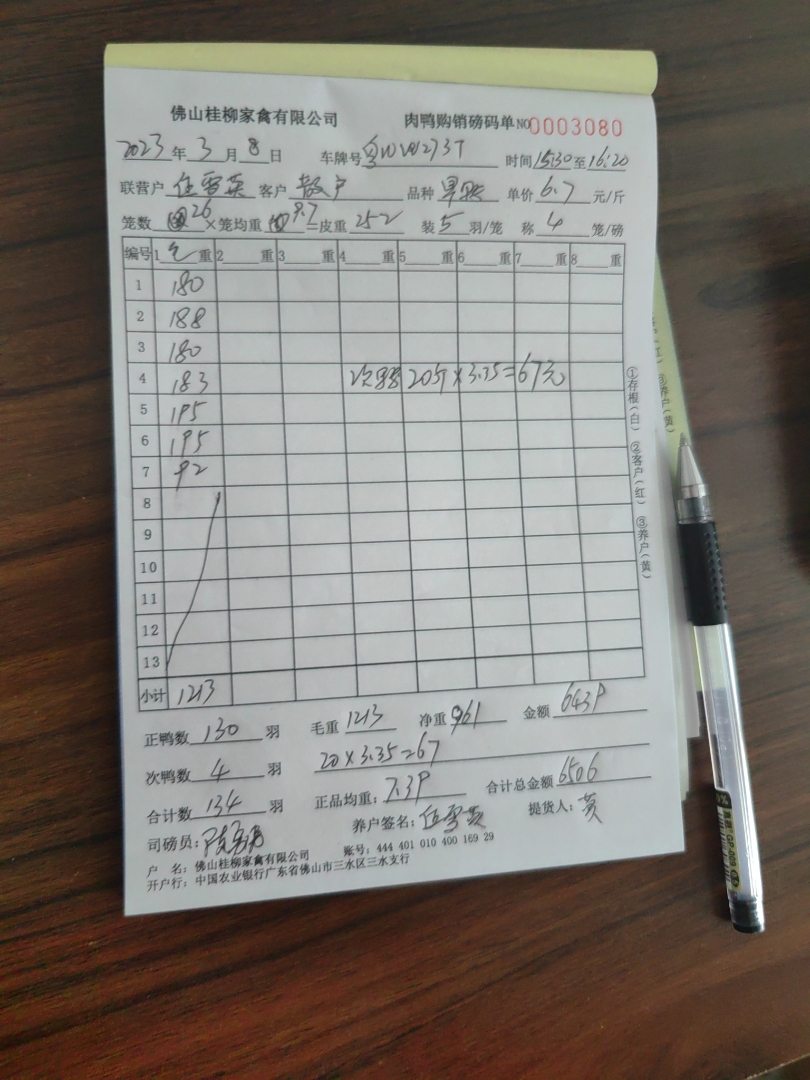 佛山桂柳家禽有限公司 肉鸭购销磅码单 NO0003080
2023年3月8日 车牌号 粤WW273T 时间15:30至16:20
联营户 伍雪英 客户 散户 品种 单价6.7元/斤
笼数 26 ×笼均重 9.7 =皮重 252 装5羽/笼 称4笼/磅
编号 1 毛重 2 重 3 重 4 重 5 重 6 重 7 重 8 重
1 180
2 188
3 180
4 183 次鸭 20斤×3.35=67元
5 195
6 195
7 92
8
9
10
11
12
13
小计 1213
正鸭数 130 羽 毛重 1213 净重 961 金额 6439
次鸭数 4 羽 20×3.35=67
合计数 134 羽 正品均重: 7.39 合计总金额 6506
司磅员: 养户签名: 伍雪英 提货人: 黄
户 名: 佛山桂柳家禽有限公司 账号: 444 401 010 400 169 29
开户行: 中国农业银行广东省佛山市三水区三水支行
①存根(白) ②客户(红) ③养户(黄)